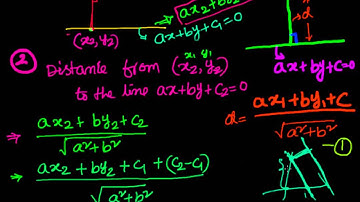 ax₂+by₂
(x₂,y₂)
ax+by+C₁=0
d
② Distance from (x₂,y₂)
x₁ y₁
ax+by+C=0
to the line ax+by+C₂=0
⇒ ax₂+by₂+C₂ / √a²+b²
d= ax₁+by₁+C / √a²+b²
⇒ ax₂+by₂+C₁+(C₂-C₁) / √a²+b²
①